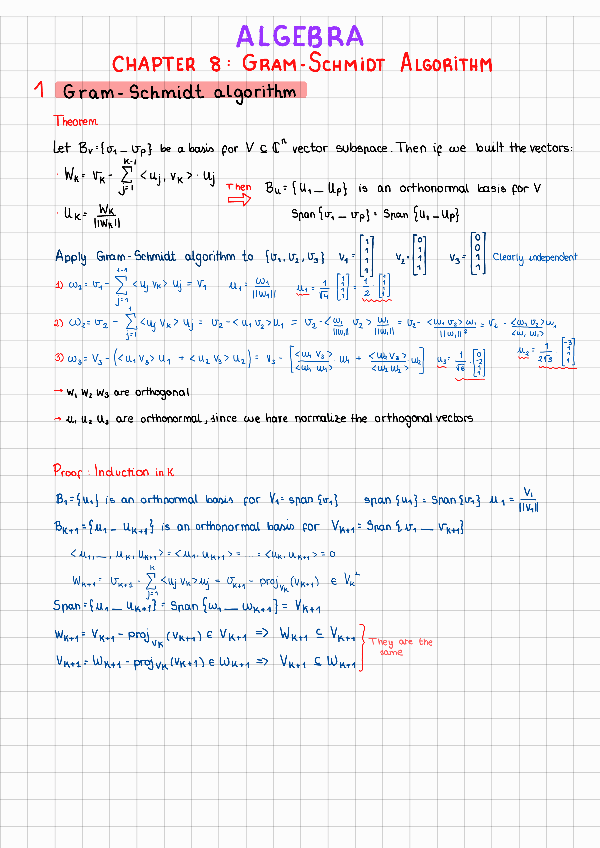 ALGEBRA
CHAPTER 8: GRAM-SCHMIDT ALGORITHM
1 Gram-Schmidt algorithm
Theorem
Let Bv={v1_vp} be a basis for V ⊆ ℂⁿ vector subspace. Then if we built the vectors:
· Wk = vk - Σ_{j=1}^{k-1} <uj, vk> · uj Then ⇒ Bu = {u1_up} is an orthonormal basis for V
· uk = Wk/||Wk|| Span{v1_vp} = Span{u1_up}
Apply Gram-Schmidt algorithm to {v1, v2, v3} v1 = [1 1 1 1] v2 = [0 1 1 1] v3 = [0 0 1 1] Clearly independent
1) w1 = v1 - Σ_{j=1}^{1-1} <uj vk> uj = v1 u1 = w1/||w1|| u1 = 1/√4 [1 1 1 1] = 1/2 [1 1 1 1]
2) w2 = v2 - Σ_{j=1}^{1} <uj vk> uj = v2 - <u1 v2> u1 = v2 - <w1/||w1|| v2> w1/||w1|| = v2 - <w1 v2> w1/||w1||² = v2 - <w1 v2> w1/<w1 w1> u2 = 1/2√3 [-3 1 1 1]
3) w3 = v3 - (<u1 v3> u1 + <u2 v3> u2) = v3 - [<w1 v3>/<w1 w1> w1 + <w2 v3>/<w2 w2> w2] u3 = 1/√6 · [0 -2 1 1]
→ w1 w2 w3 are orthogonal
→ u1 u2 u3 are orthonormal, since we have normalize the orthogonal vectors
Proof: Induction in K
B1 = {u1} is an orthonormal basis for V1 = span{v1} span{u1} = Span{v1} u1 = V1/||V1||
Bk+1 = {u1_uk+1} is an orthonormal basis for Vk+1 = Span{v1_vk+1}
<u1,_, uk, uk+1> = <u1, uk+1> = ... = <uk, uk+1> = 0
Wk+1 = vk+1 - Σ_{j=1}^{k} <uj vk> uj = vk+1 - proj_Vk (vk+1) ∈ Vk^⊥
Span = {u1_uk+1} = Span{w1_wk+1} = Vk+1
Wk+1 = Vk+1 - proj_Vk (vk+1) ∈ Vk+1 => Wk+1 ⊆ Vk+1
They are the
same
Vk+1 = Wk+1 - proj_Vk (vk+1) ∈ Wk+1 => Vk+1 ⊆ Wk+1